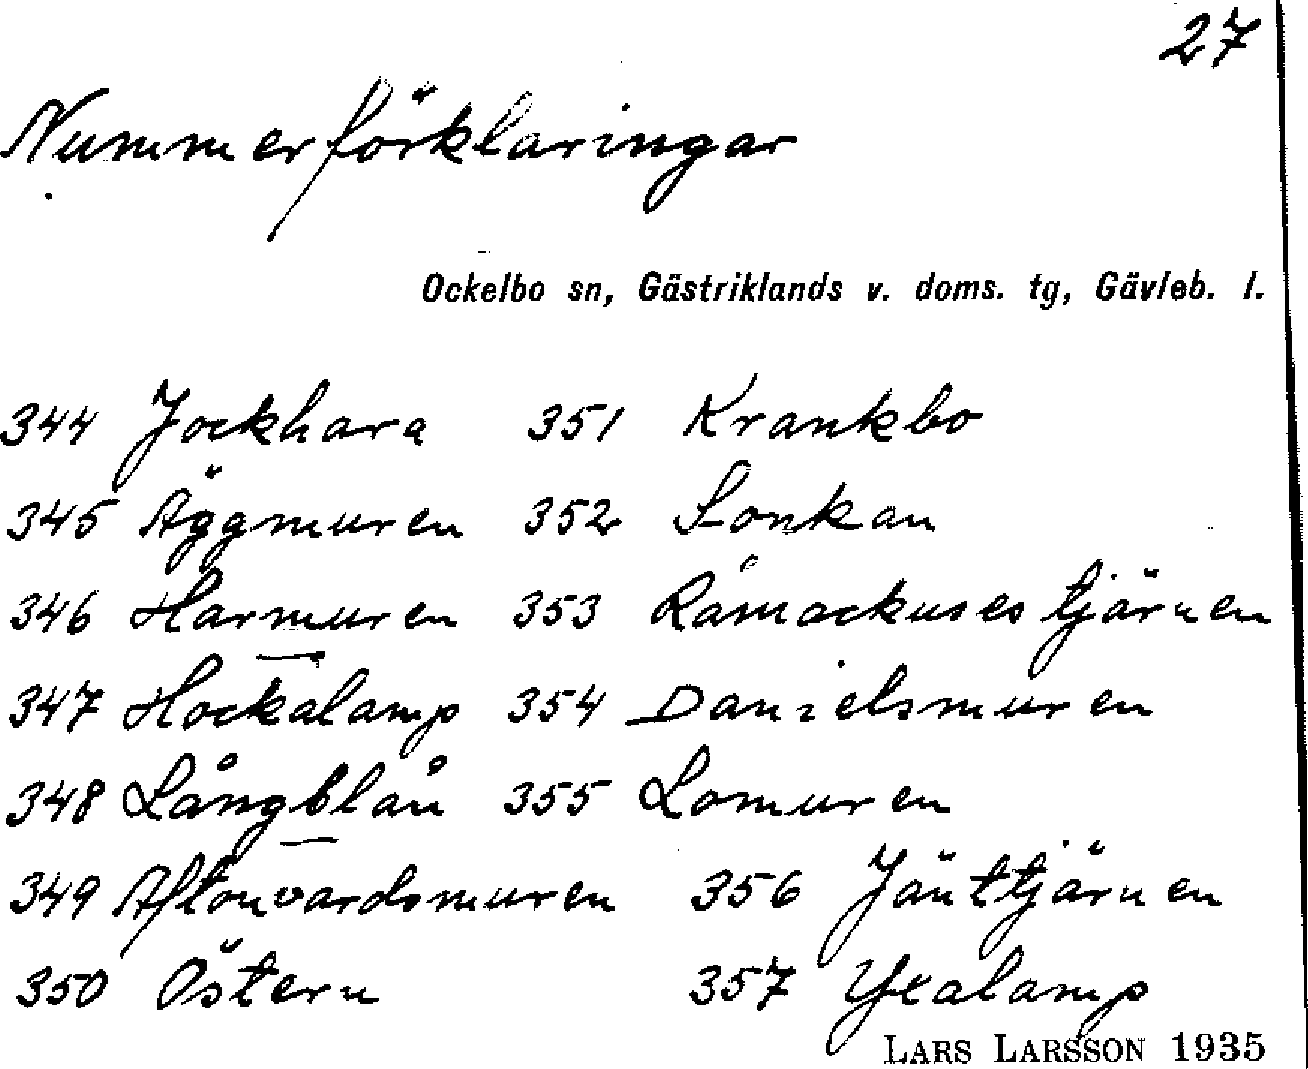 27
Nummerförklaringar
Ockelbo sn, Gästriklands v. doms. tg, Gävleb. l.
344 Jockhara 351 Krankbo
345 Äggmuren 352 Lonkan
346 Harmuren 353 Råmackusestjärnen
347 Hockalamp 354 Danielsmuren
348 Långblån 355 Lomuren
349 Aftonvardsmuren 356 Jänttjärnen
350 Östern 357 Yxalamp
LARS LARSSON 1935